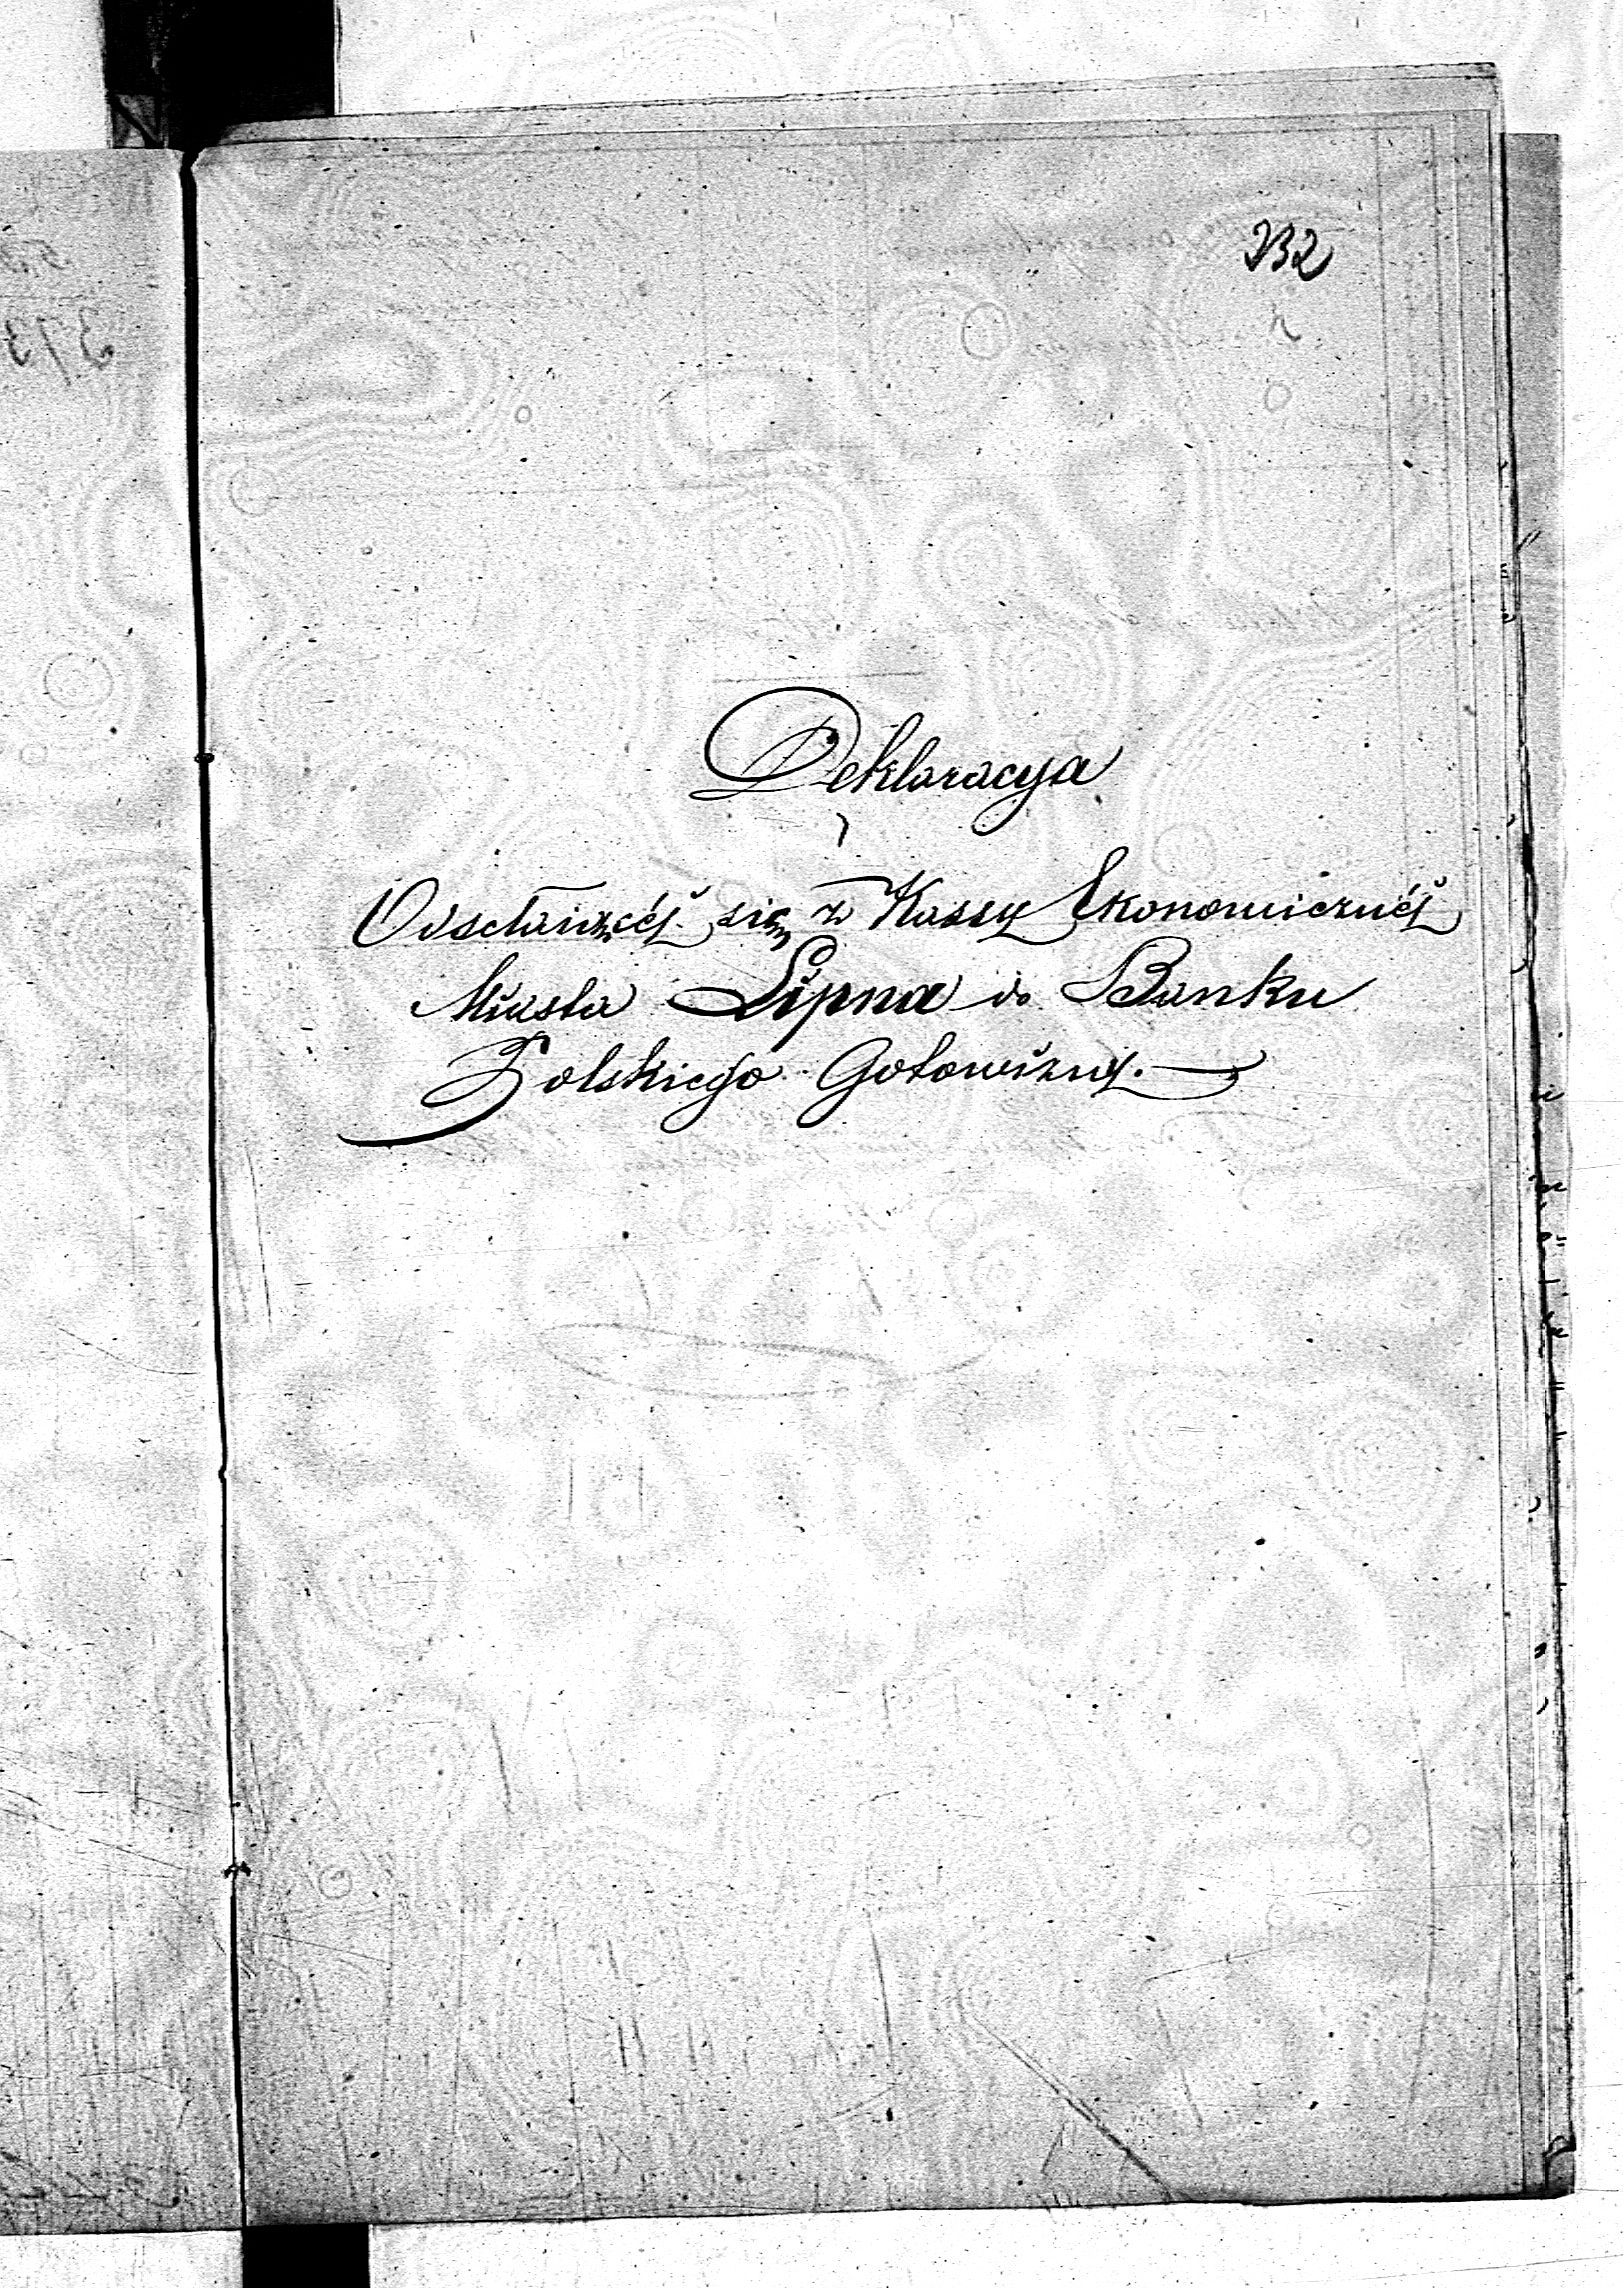 232
Deklaracya
Odsełaiącéj się z Kassy Ekonomicznéj
Miasta Lipna do Banku
Polskiego Gotowizny.